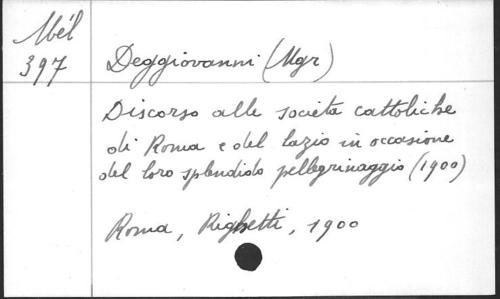 Mél
397
Deggiovanni (Mgr)
Discorso alle società cattoliche
di Roma e del Lazio in occasione
del loro splendido pellegrinaggio (1900)
Roma, Righetti, 1900